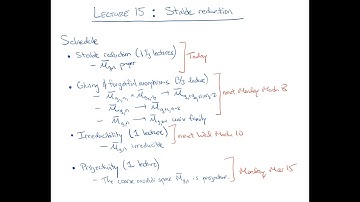 Lecture 15 : Stable reduction
Schedule
• Stable reduction (1 1/3 lectures)
– M̄g,n proper
Today
• Gluing & forgetful morphisms (2/3 lecture)
– M̄g1,n1 × M̄g2,n2 → M̄g1+g2,n1+n2-2
– M̄g,n → M̄g+1,n-2
– M̄g,n → M̄g,n-1 univ family
next Monday March 8
• Irreducibility (1 lecture)
– M̄g,n irreducible
next Wed March 10
• Projectivity (1 lecture)
– The coarse moduli space M̄g,n is projective.
Monday Mar 15